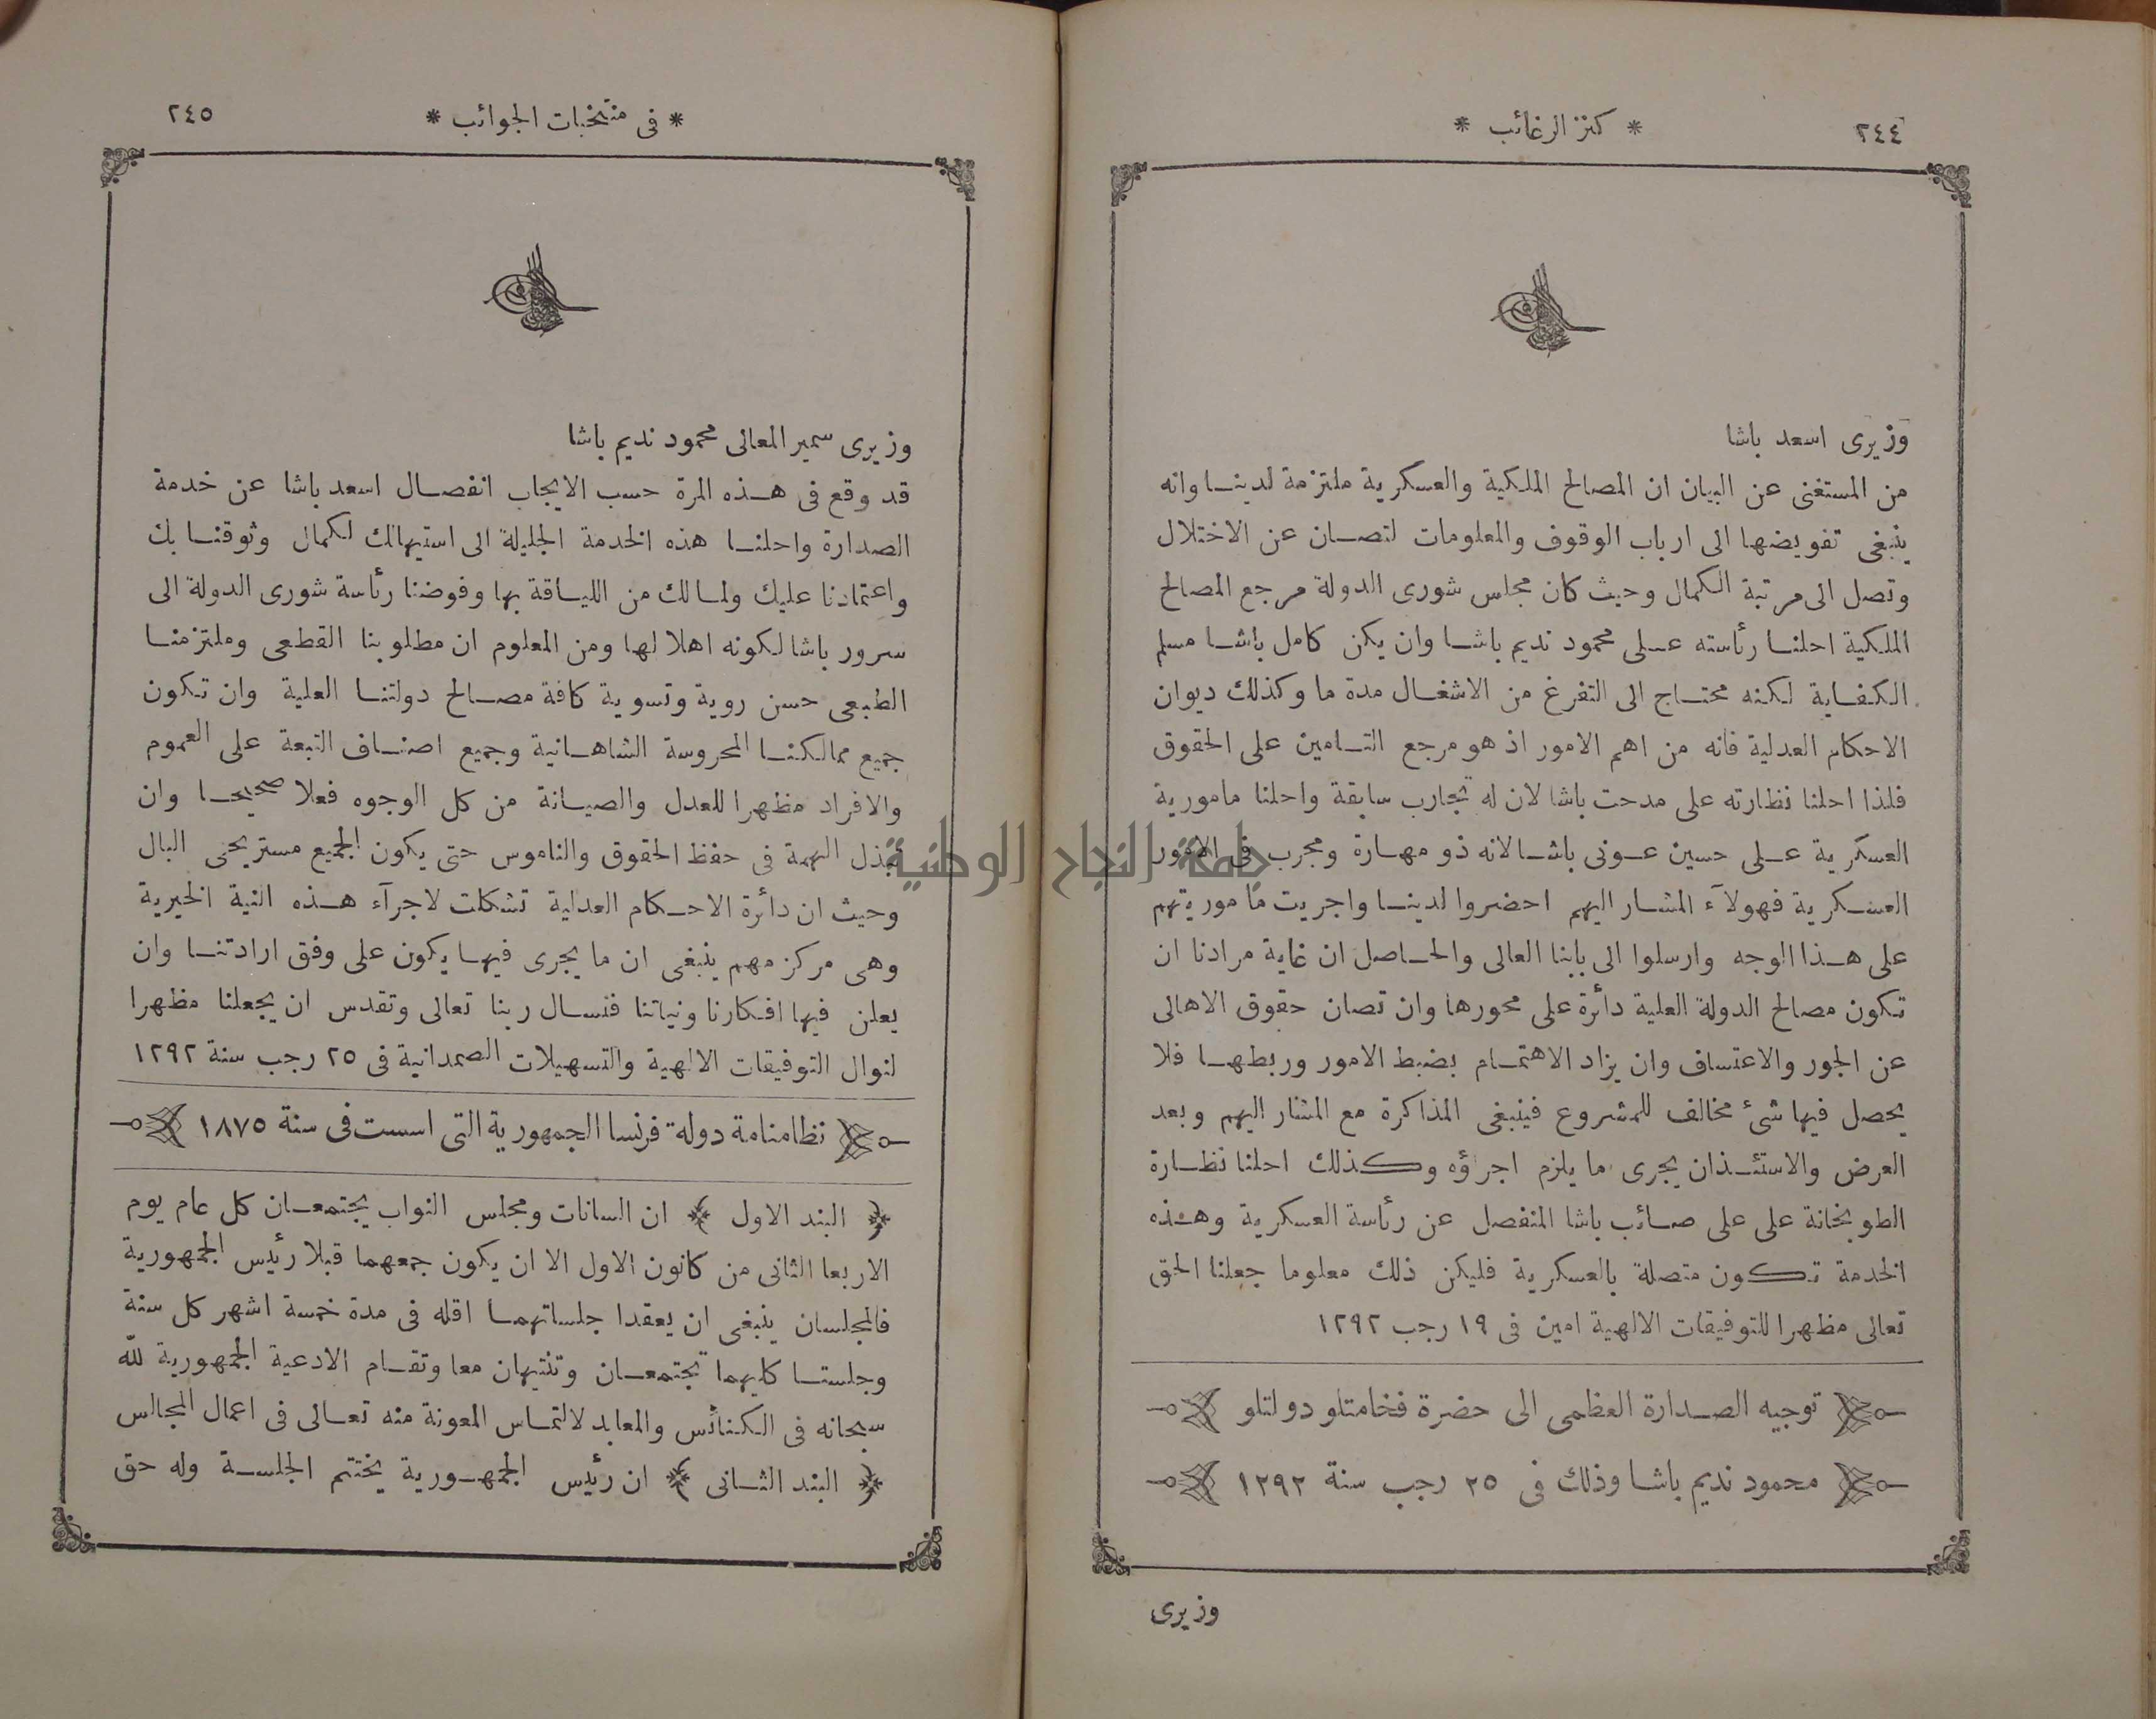 ٢٤٤
* كنز الرغائب *
وزيرى اسعد باشا
من المستغنى عن البيان ان المصالح الملكية والعسكرية ملتزمة لدينا وانه
ينبغى تفويضها الى ارباب الوقوف والمعلومات لتصان عن الاختلال
وتصل الى مرتبة الكمال وحيث كان مجلس شورى الدولة مرجع المصالح
الملكية احلنا رئاسته على محمود نديم باشا وان يكن كامل باشا مسلم
الكفاية لكنه محتاج الى التفرغ من الاشغال مدة ما وكذلك ديوان
الاحكام العدلية فانه من اهم الامور اذ هو مرجع التامين على الحقوق
فلذا احلنا نظارته على مدحت باشا لان له تجارب سابقة واحلنا مامورية
العسكرية على حسين عونى باشا لانه ذو مهارة ومجرب فى الامور
العسكرية فهولآء المشار اليهم احضروا لدينا واجريت مأموريتهم
على هذا الوجه وارسلوا الى بابنا العالى والحاصل ان غاية مرادنا ان
تكون مصالح الدولة العلية دائرة على محورها وان تصان حقوق الاهالى
عن الجور والاعتساف وان يزاد الاهتمام بضبط الامور وربطها فلا
يحصل فيها شئ مخالف للمشروع فينبغى المذاكرة مع المشار اليهم وبعد
العرض والاستئذان يجرى ما يلزم اجرؤه وكذلك احلنا نظارة
الطوبخانة على على صائب باشا المنفصل عن رئاسة العسكرية وهذه
الخدمة تكون متصلة بالعسكرية فليكن ذلك معلوما جعلنا الحق
تعالى مظهرا للتوفيقات الالهية امين فى ١٩ رجب ١٢٩٢
توجيه الصدارة العظمى الى حضرة فخامتلو دولتلو
محمود نديم باشا وذلك فى ٢٥ رجب سنة ١٢٩٢
وزيرى
٢٤٥
* فى منتخبات الجوائب *
وزيرى سمير المعالى محمود نديم باشا
قد وقع فى هذه المرة حسب الايجاب انفصال اسعد باشا عن خدمة
الصدارة واحلنا هذه الخدمة الجليلة الى استيهالك لكمال وثوقنا بك
واعتمادنا عليك ولما لك من اللياقة بها وفوضنا رئاسة شورى الدولة الى
سرور باشا لكونه اهلا لها ومن المعلوم ان مطلوبنا القطعى وملتزمنا
الطبعى حسن روية وتسوية كافة مصالح دولتنا العلية وان تكون
جميع ممالكنا المحروسة الشاهانية وجميع اصناف التبعة على العموم
والافراد مظهرا للعدل والصيانة من كل الوجوه فعلا صحيحا وان
تبذل الهمة فى حفظ الحقوق والناموس حتى يكون الجميع مستريحى البال
وحيث ان دائرة الاحكام العدلية تشكلت لاجرآء هذه النية الخيرية
وهى مركز مهم ينبغى ان ما يجرى فيها يكون على وفق ارادتنا وان
يعلن فيها افكارنا ونياتنا فنسال ربنا تعالى وتقدس ان يجعلنا مظهرا
لنوال التوفيقات الالهية والتسهيلات الصمدانية فى ٢٥ رجب سنة ١٢٩٢
نظامنامة دولة فرنسا الجمهورية التى اسست فى سنة ١٨٧٥
﴿ البند الاول ﴾ ان السانات ومجلس النواب يجتمعان كل عام يوم
الاربعا الثانى من كانون الاول الا ان يكون جمعهما قبلا رئيس الجمهورية
فالمجلسان ينبغى ان يعقدا جلساتهما اقله فى مدة خمسة اشهر كل سنة
وجلستا كليهما تجتمعان وتنتهيان معا وتقام الادعية الجمهورية لله
سبحانه فى الكنائس والمعابد لالتماس المعونة منه تعالى فى اعمال المجالس
﴿ البند الثانى ﴾ ان رئيس الجمهورية يختتم الجلسة وله حق
جامعة النجاح الوطنية